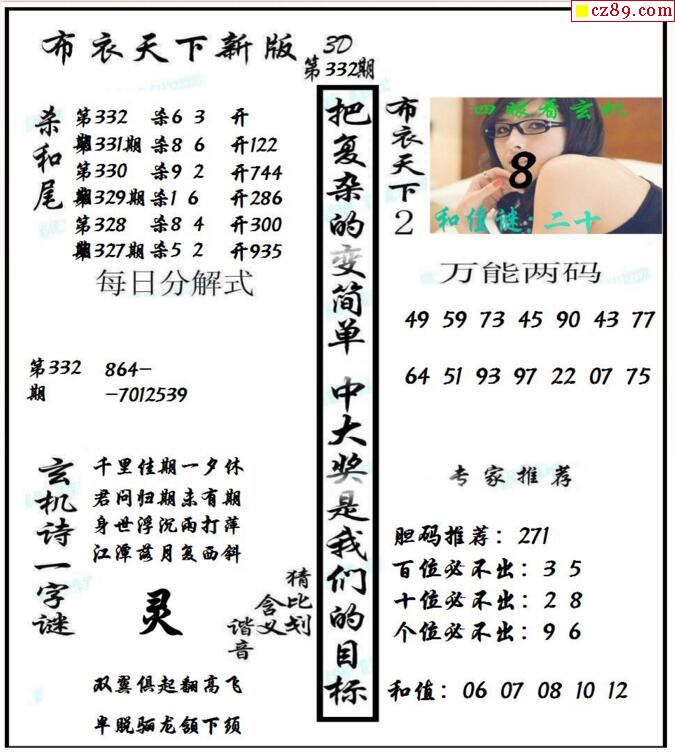 cz89.com
布衣天下新版 3D
第332期
杀和尾
第332期 杀6 3 开
第331期 杀8 6 开122
第330期 杀9 2 开744
第329期 杀1 6 开286
第328期 杀8 4 开300
第327期 杀5 2 开935
每日分解式
第332期 864-
-7012539
玄机诗一字谜
千里佳期一夕休
君问归期未有期
身世浮沉雨打萍
江潭落月复西斜
灵
猜比划
含义
谐音
双翼俱起翻高飞
早脱骊龙颔下须
把复杂的变简单 中大奖是我们的目标
布衣天下2
四眼看玄机
8
和值谜:二十
万能两码
49 59 73 45 90 43 77
64 51 93 97 22 07 75
专家推荐
胆码推荐:271
百位必不出:3 5
十位必不出:2 8
个位必不出:9 6
和值:06 07 08 10 12